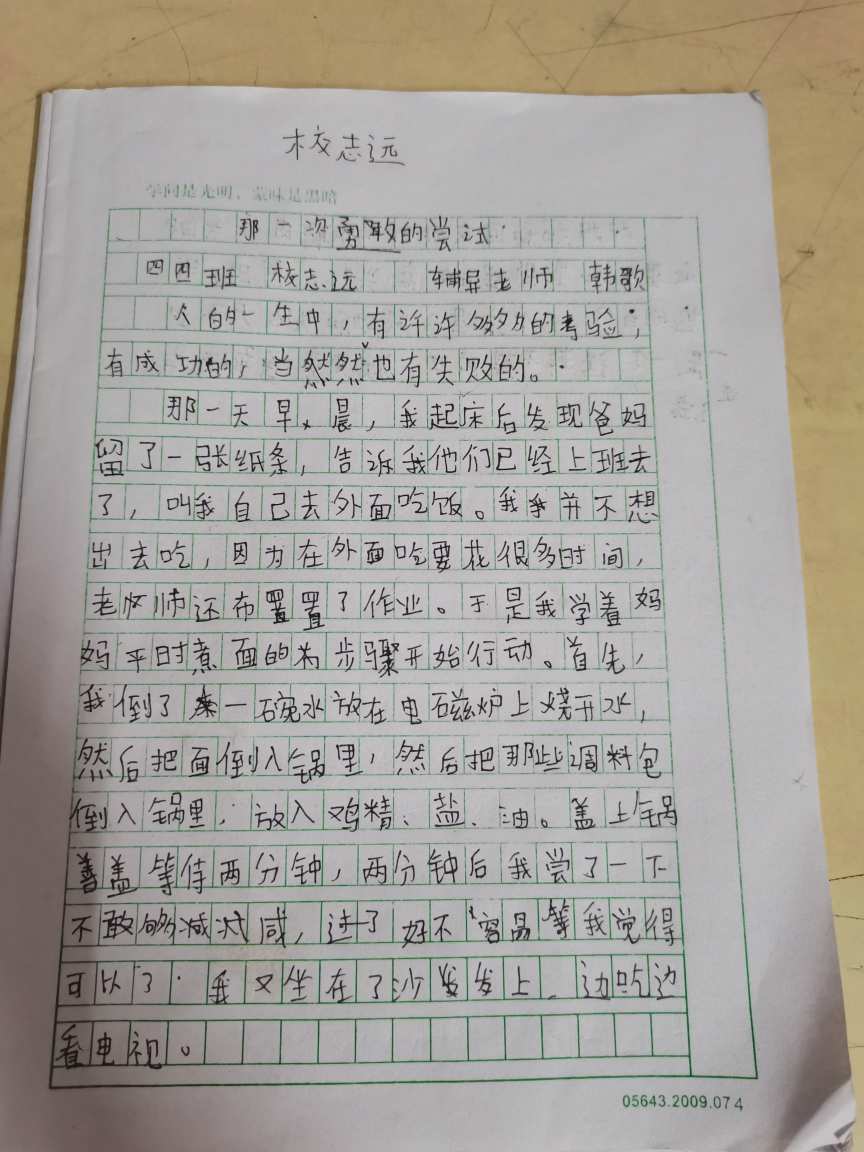 校志远
学问是光明，蒙昧是黑暗
那一次勇敢的尝试
四四班 校志远 辅导老师 韩歌
人的一生中，有许许多多的考验，
有成功的，当然然也有失败的。
那一天早晨，我起床后发现爸妈
留了一张纸条，告诉我他们已经上班去
了，叫我自己去外面吃饭。我我并不想
出去吃，因为在外面吃要花很多时间，
老师还布置置了作业。于是我学着妈
妈平时煮面的步骤开始行动。首先，
我倒了一碗水放在电磁炉上烧开水，
然后把面倒入锅里，然后把那些调料包
倒入锅里，放入鸡精、盐、油。盖上锅
盖等待两分钟，两分钟后我尝了一下
不敢够减减咸，过了好不容易等我觉得
可以了 我又坐在了沙发发上 边吃边
看电视。
05643.2009.074